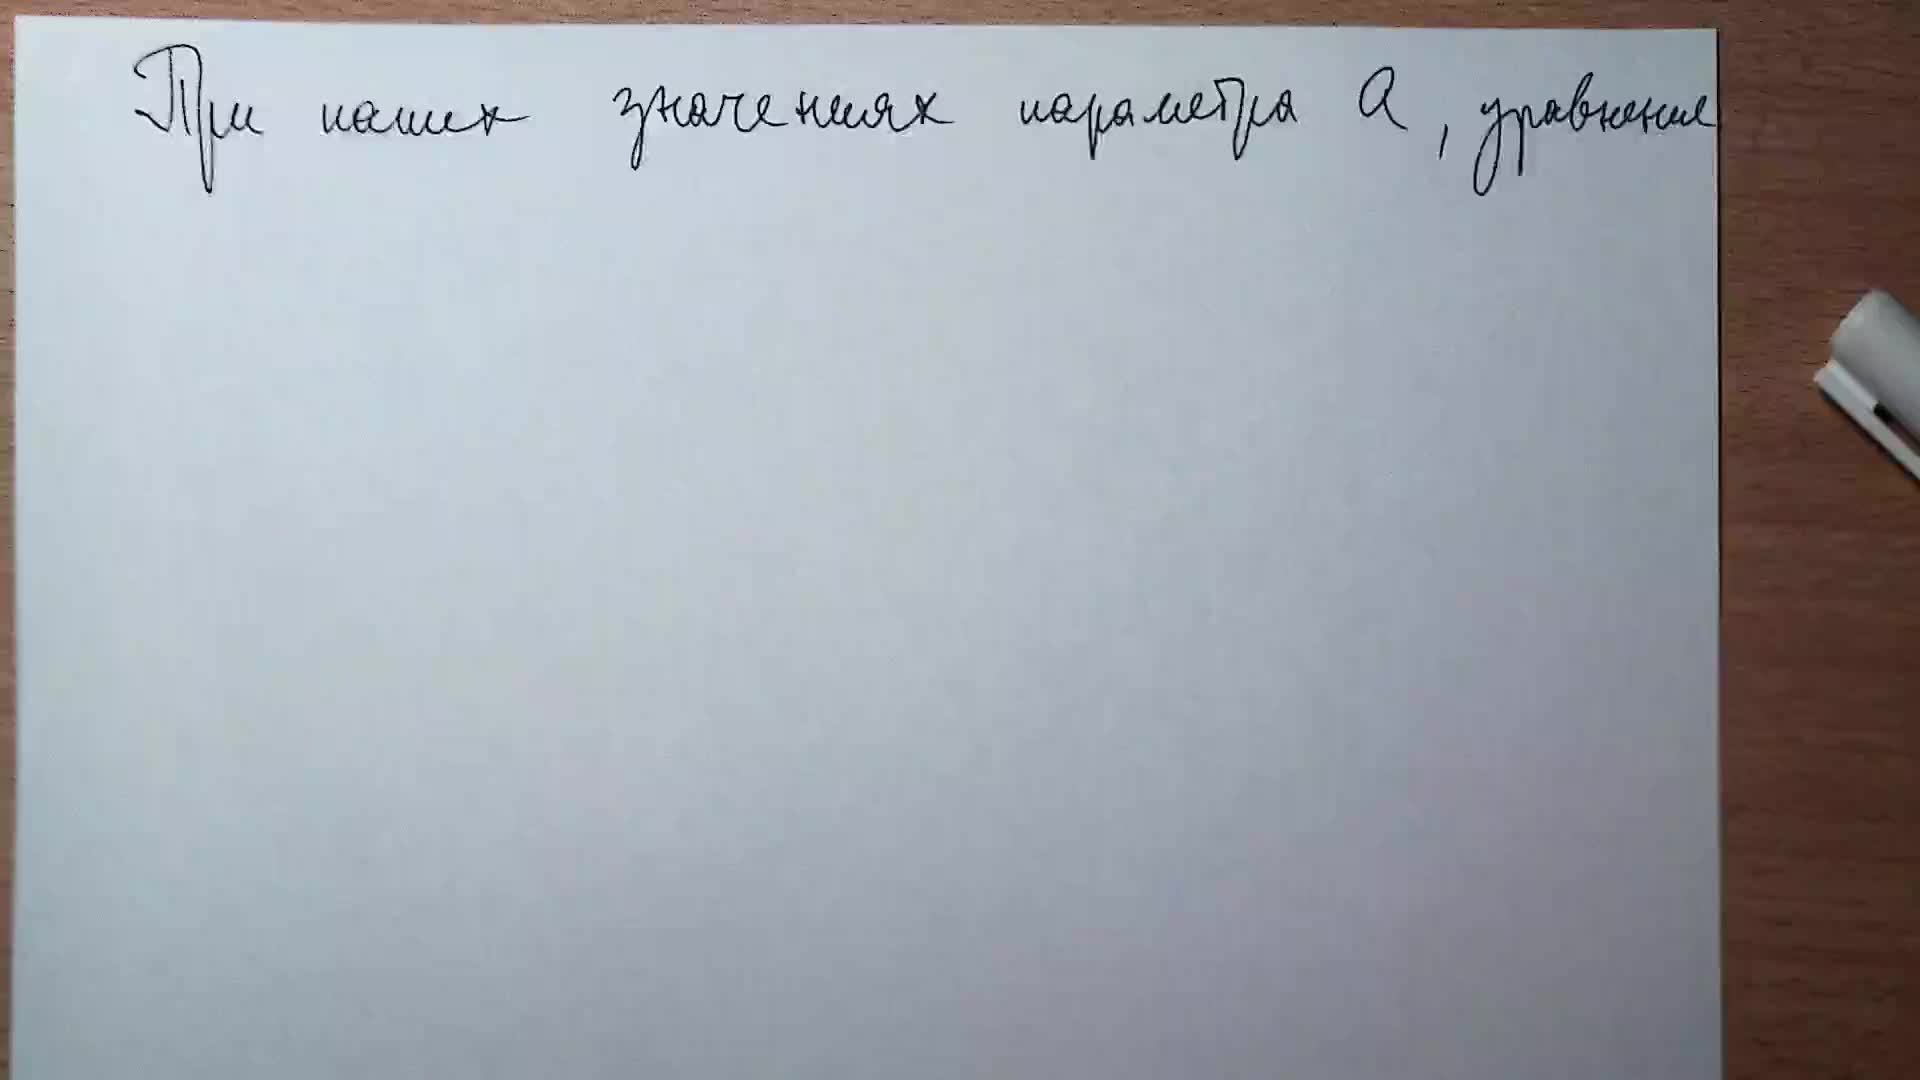 При каких значениях параметра а, уравнение